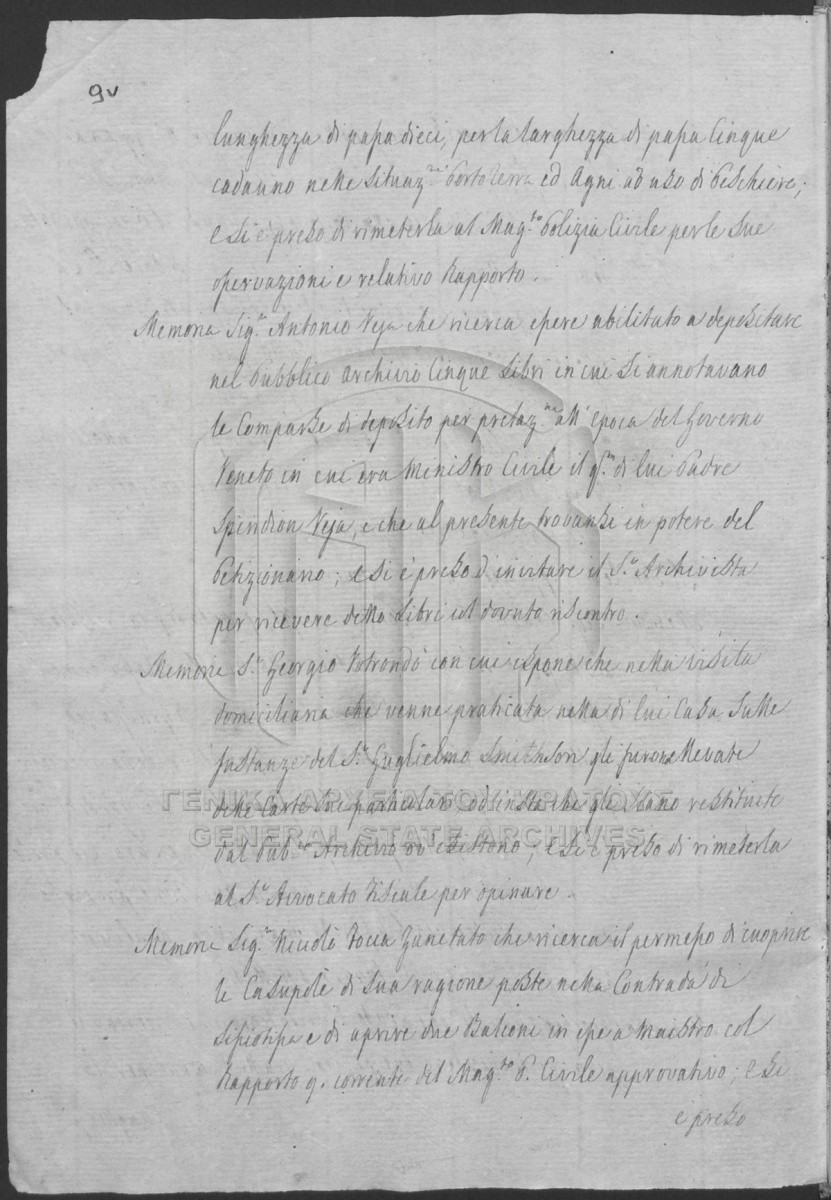 9v
lunghezza di passa dieci, per la larghezza di passa Cinque
cadauno nelle situaz.ni Porto Terra ed Agni ad uso di Peschiere;
e si è preso di rimeterla al Mag.to Polizia Civile per le sue
osservazioni e relativo Rapporto.
Memoria Sig.r Antonio Veja che ricerca essere abilitato a depositare
nel Pubblico Archivio Cinque Libri in cui si annotavano
le Comparse di deposito per prelaz.ne all' epoca del Governo
Veneto in cui era Ministro Civile il q.m di lui Padre
Spiridion Veja, e che al presente trovansi in potere del
Petizionario; e si è preso d'incitare il S.r Archivista
per ricevere detti Libri col dovuto riscontro.
Memoria S.r Georgio Notrondà con cui espone che nella visita
domiciliaria che venne praticata nella di lui Casa sulle
Instanze del S.r Guglielmo Smithson gli furono llevate
delle Carte sue particolari ed insta che gli siano restituite
dal Pub.co Archivio ov' esistono; e si è preso di rimeterla
al S.r Avvocato Fiscale per opinare.
Memoria Sig.r Niccolò Tocca Zanetato che ricerca il permesso di cuoprire
le Casupole di sua ragione poste nella Contrada di
e di aprire due Balconi in esse a Maistro col
Rapporto 9. corrente del Mag.to P. Civile approvativo; e si
è preso
ΓΕΝΙΚΑ ΑΡΧΕΙΑ ΤΟΥ ΚΡΑΤΟΥΣ
GENERAL STATE ARCHIVES